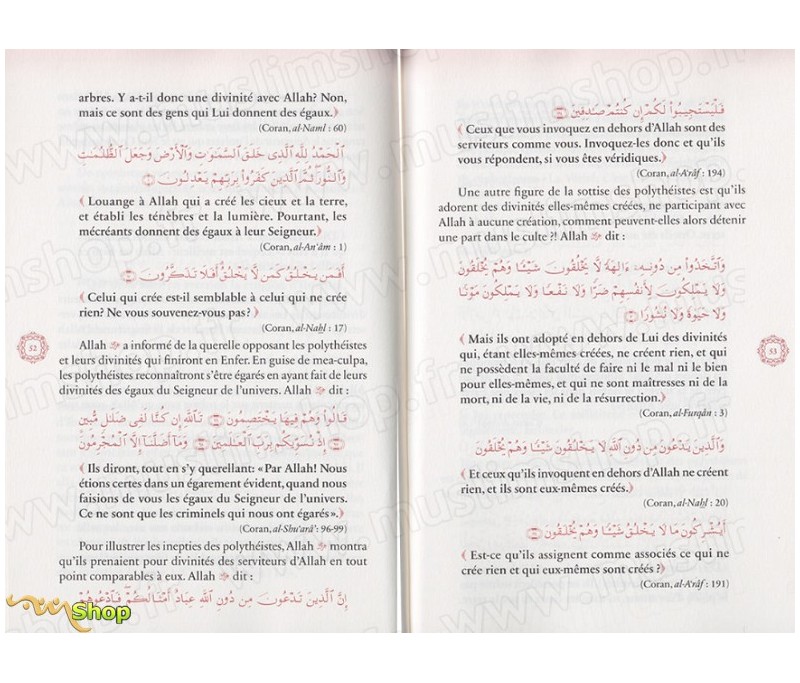 arbres. Y a-t-il donc une divinité avec Allah? Non,
mais ce sont des gens qui Lui donnent des égaux.﴿
(Coran, al-Naml : 60)
ٱلْحَمْدُ لِلَّهِ ٱلَّذِى خَلَقَ ٱلسَّمَٰوَٰتِ وَٱلْأَرْضَ وَجَعَلَ ٱلظُّلُمَٰتِ
وَٱلنُّورَ ثُمَّ ٱلَّذِينَ كَفَرُوا۟ بِرَبِّهِمْ يَعْدِلُونَ
﴾ Louange à Allah qui a créé les cieux et la terre,
et établi les ténèbres et la lumière. Pourtant, les
mécréants donnent des égaux à leur Seigneur.﴿
(Coran, al-An'âm : 1)
أَفَمَن يَخْلُقُ كَمَن لَّا يَخْلُقُ أَفَلَا تَذَكَّرُونَ
﴾ Celui qui crée est-il semblable à celui qui ne crée
rien? Ne vous souvenez-vous pas? ﴿
(Coran, al-Naḥl : 17)
Allah ﷻ a informé de la querelle opposant les polythéistes
et leurs divinités qui finiront en Enfer. En guise de mea-culpa,
les polythéistes reconnaîtront s'être égarés en ayant fait de leurs
divinités des égaux du Seigneur de l'univers. Allah ﷻ dit :
قَالُوا۟ وَهُمْ فِيهَا يَخْتَصِمُونَ تَٱللَّهِ إِن كُنَّا لَفِى ضَلَٰلٍ مُّبِينٍ
إِذْ نُسَوِّيكُم بِرَبِّ ٱلْعَٰلَمِينَ وَمَآ أَضَلَّنَآ إِلَّا ٱلْمُجْرِمُونَ
﴾ Ils diront, tout en s'y querellant: « Par Allah! Nous
étions certes dans un égarement évident, quand nous
faisions de vous les égaux du Seigneur de l'univers.
Ce ne sont que les criminels qui nous ont égarés ».﴿
(Coran, al-Shu'arâ' : 96-99)
Pour illustrer les inepties des polythéistes, Allah ﷻ montra
qu'ils prenaient pour divinités des serviteurs d'Allah en tout
point comparables à eux. Allah ﷻ dit :
إِنَّ ٱلَّذِينَ تَدْعُونَ مِن دُونِ ٱللَّهِ عِبَادٌ أَمْثَالُكُمْ فَٱدْعُوهُمْ
52
Shop
فَلْيَسْتَجِيبُوا۟ لَكُمْ إِن كُنتُمْ صَٰدِقِينَ
﴾ Ceux que vous invoquez en dehors d'Allah sont des
serviteurs comme vous. Invoquez-les donc et qu'ils
vous répondent, si vous êtes véridiques.﴿
(Coran, al-A'râf : 194)
Une autre figure de la sottise des polythéistes est qu'ils
adorent des divinités elles-mêmes créées, ne participant avec
Allah à aucune création, comment peuvent-elles alors détenir
une part dans le culte ?! Allah ﷻ dit :
وَٱتَّخَذُوا۟ مِن دُونِهِۦٓ ءَالِهَةً لَّا يَخْلُقُونَ شَيْـًٔا وَهُمْ يُخْلَقُونَ
وَلَا يَمْلِكُونَ لِأَنفُسِهِمْ ضَرًّا وَلَا نَفْعًا وَلَا يَمْلِكُونَ مَوْتًا
وَلَا حَيَوٰةً وَلَا نُشُورًا
﴾ Mais ils ont adopté en dehors de Lui des divinités
qui, étant elles-mêmes créées, ne créent rien, et qui
ne possèdent la faculté de faire ni le mal ni le bien
pour elles-mêmes, et qui ne sont maîtresses ni de la
mort, ni de la vie, ni de la résurrection.﴿
(Coran, al-Furqân : 3)
وَٱلَّذِينَ يَدْعُونَ مِن دُونِ ٱللَّهِ لَا يَخْلُقُونَ شَيْـًٔا وَهُمْ يُخْلَقُونَ
﴾ Et ceux qu'ils invoquent en dehors d'Allah ne créent
rien, et ils sont eux-mêmes créés.﴿
(Coran, al-Naḥl : 20)
أَيُشْرِكُونَ مَا لَا يَخْلُقُ شَيْـًٔا وَهُمْ يُخْلَقُونَ
﴾ Est-ce qu'ils assignent comme associés ce qui ne
crée rien et qui eux-mêmes sont créés ? ﴿
(Coran, al-A'râf : 191)
53
www.muslimshop.fr